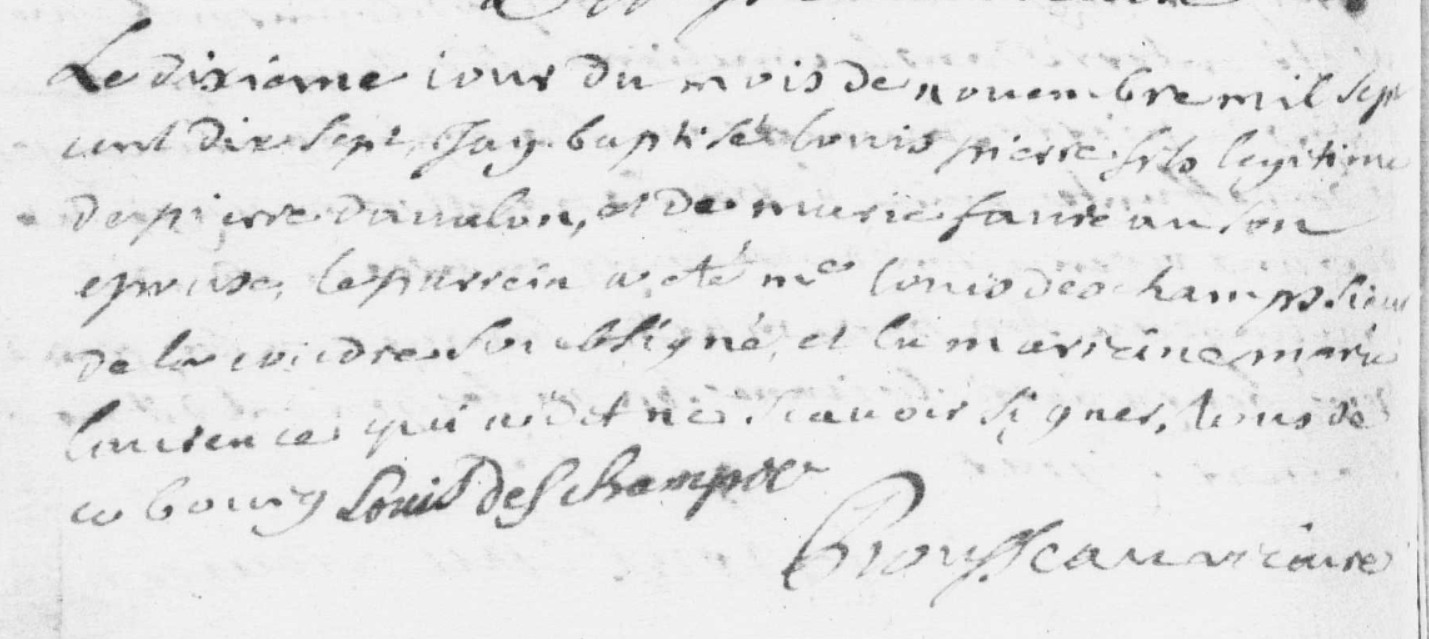 Le dixieme iour du mois de nouembre mil sept
cent dix sept, Jay baptisé louis pierre fils legitime
de pierre daualon, et de marie faureau son
epouse, le parrein a eté mᵉ louis deschamps sieur
de la soubsigné, et la marreine marie
laurence qui a dit ne scauoir signer, tous de
ce bourg Louis Deschamps
Brousseau vicaire